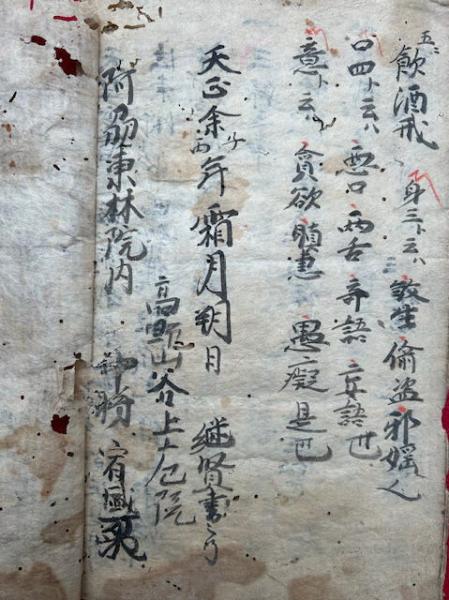 五ニ飲酒戒 身三ト云ハ殺生偸盗邪婬
口四ト云ハ悪口両舌奇語妄語也
意ト云ハ貪欲瞋恚愚癡是也
天正年霜月朔日 継賢書之
高野山谷上院
阿刕東林院内